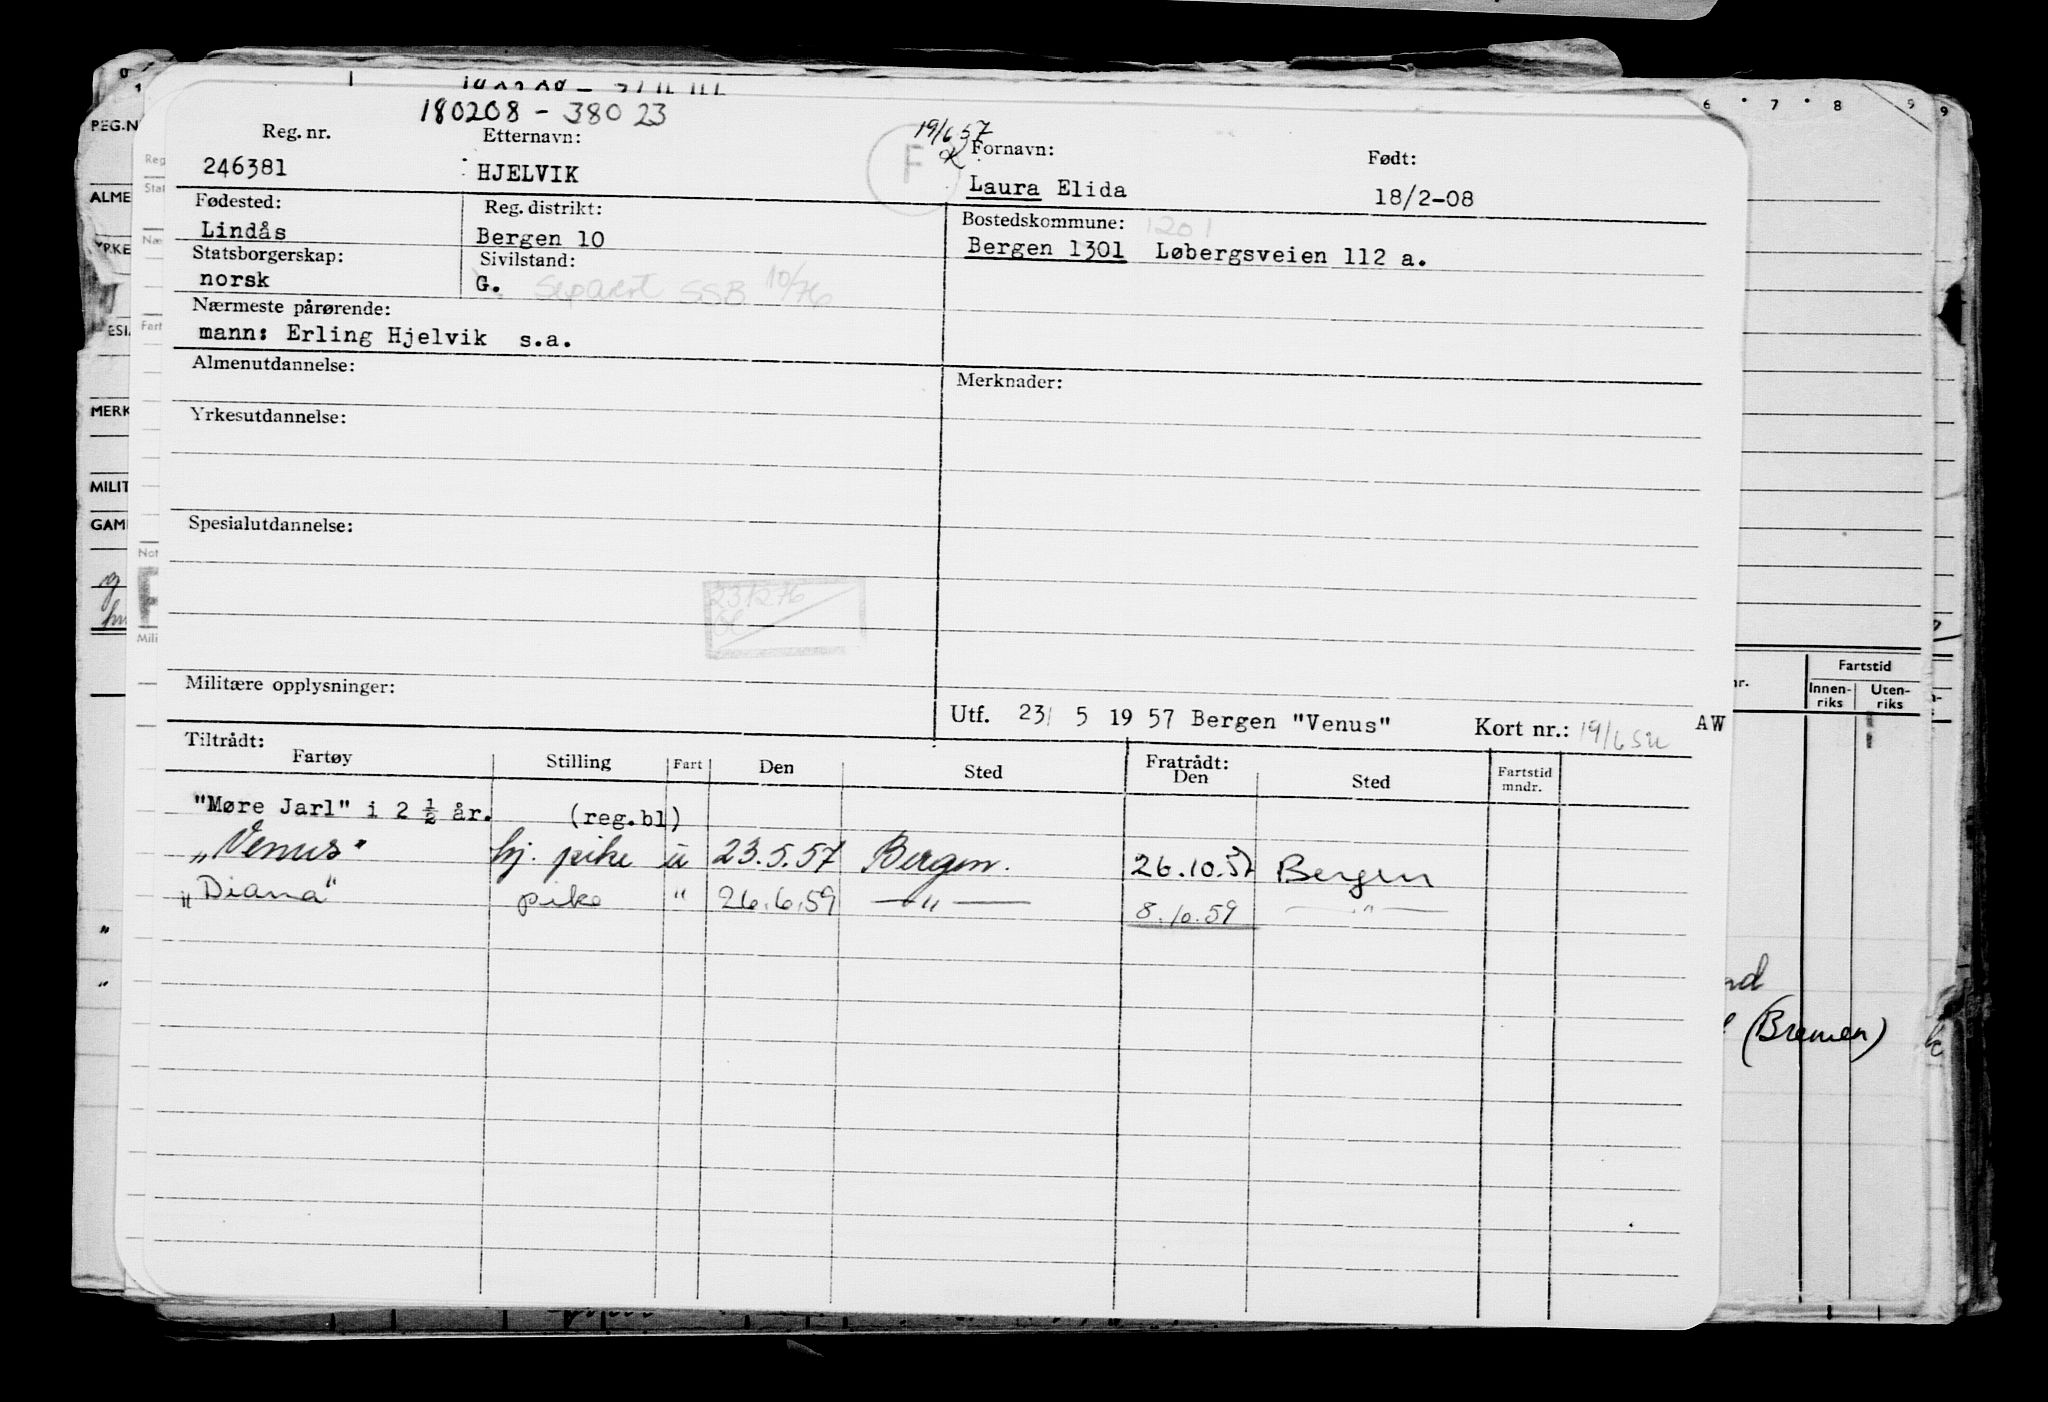 180208 - 38023
19/6 57
Reg. nr. Etternavn: F Fornavn: Født:
246381 HJELVIK Laura Elida 18/2-08
Fødested: Reg. distrikt: Bostedskommune: 1201
Lindås Bergen 10 Bergen 1301 Løbergsveien 112 a.
Statsborgerskap: Sivilstand:
norsk G. Separert SSB 10/76
Nærmeste pårørende:
mann: Erling Hjelvik s.a.
Almenutdannelse: Merknader:
Yrkesutdannelse:
Spesialutdannelse:
231276
Militære opplysninger:
Utf. 23/ 5 19 57 Bergen "Venus" Kort nr.: AW
Tiltrådt: Fratrådt:
Fartøy Stilling Fart Den Sted Den Sted Fartstid mndr.
"Møre Jarl" i 2 ½ år. (reg.bl)
"Venus" hj. pike u 23.5.57 Bergen. 26.10.57 Bergen
"Diana" pike " 26.6.59 —"— 8.10.59 —"—
REG.N
ALME
YRKE
ESIA
MERK
MILIT
GAM
Reg
Stat
Næ
Fart
Not
Mili
6 7 8 9 9
Fartstid
nr. Innenriks Utenriks
(Bremen)